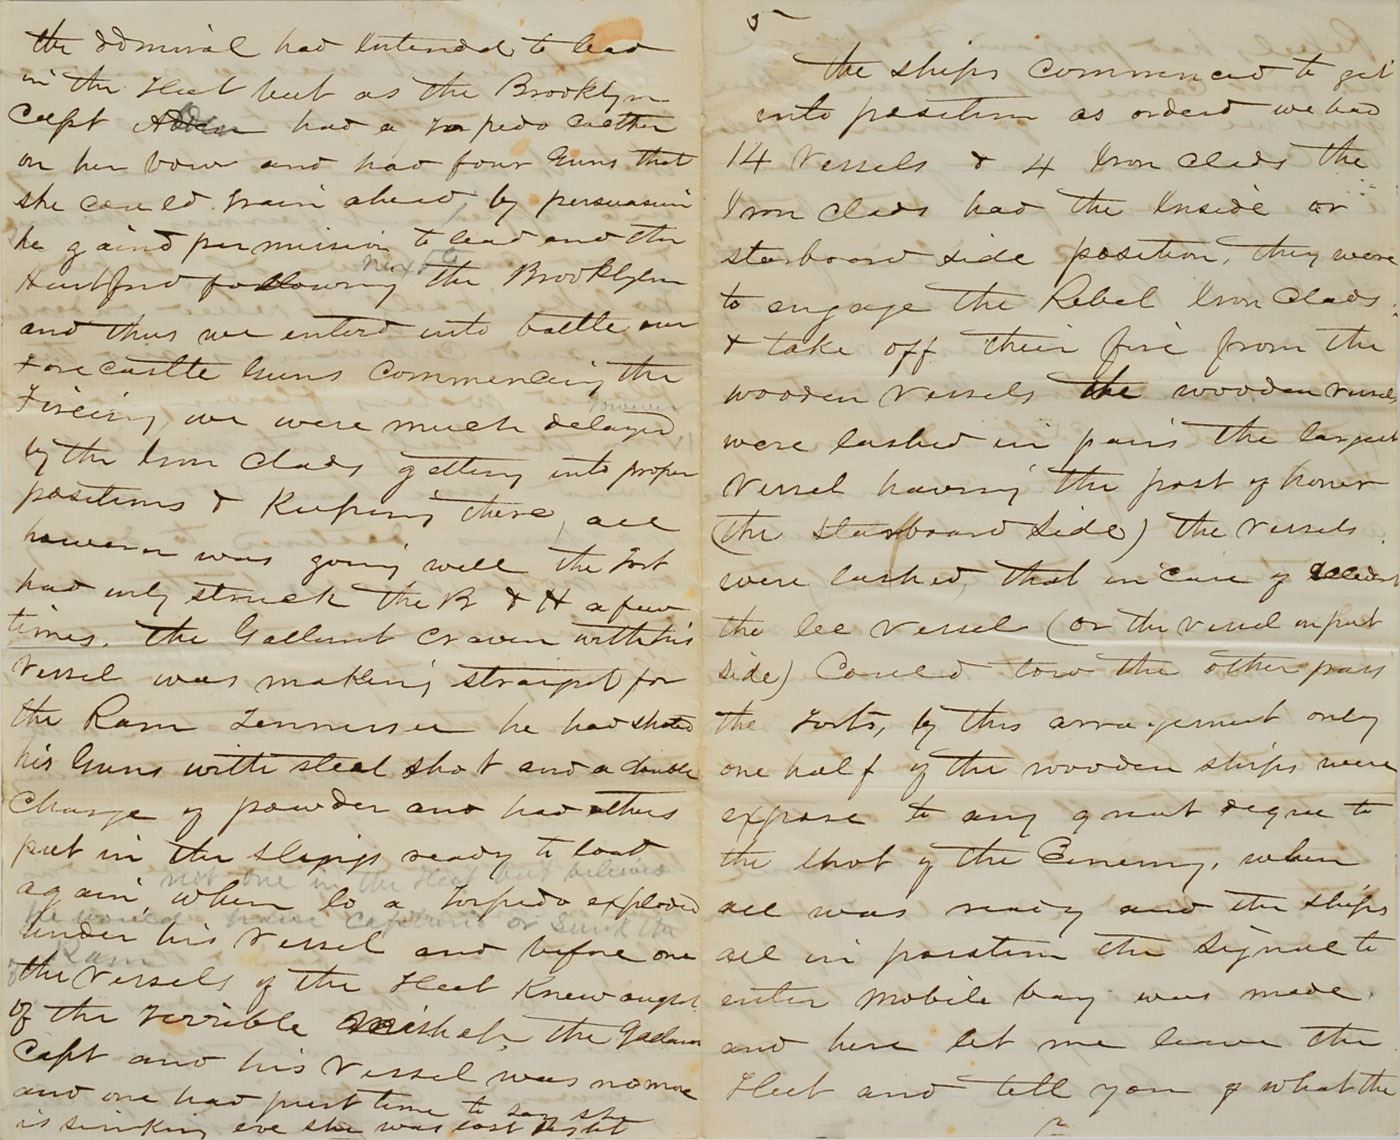 the admiral had intended to lead
in the Fleet but as the Brooklyn
Capt Alden had a Torpedo catcher
on her bow and had four Guns that
she could train ahead, by persuasion
he gaind permission to lead and the
next to
Hartford following the Brooklyn
and thus we enterd into battle our
Forecastle Guns Commencing the
Fireing, we were much delayed
however
by the Iron Clads getting into proper
positions & Keeping there, all
however was going well the Fort
had only struck the B & H a few
times. The Gallant Craven with his
Vessel was making straight for
the Ram Tennessee he had shoted
his Guns with steel shot and a double
Charge of powder and had others
put in the slings ready to load
not one in the Fleet but believes
again, when lo a Torpedo exploded
he would have Captured or Sunk the
Ram
under his Vessel and before one
the Vessels of the Fleet Knew aught
of the Terrible mishap, the Gallant
Capt and his Vessel was no more
and one had just time to say she
is sinking ere she was lost sight
5
The ships commenced to get
into position as orderd we had
14 Vessels & 4 Iron Clads the
Iron Clads had the Inside or
starboard side position, they were
to engage the Rebel Iron Clads
& take off their fire from the
wooden Vessels the wooden vessels
were lashed in pairs the largest
Vessel having the post of honor
(the starboard side) the Vessels
were lashed, that in case of accident
the lee Vessel (or the vessel on port
side) Could tow the other pass
the Forts, by this arrangement only
one half of the wooden ships were
expose to any great degree to
the shot of the Enemy. when
all was ready and the ships
all in position the signal to
enter Mobile bay was made.
and here let me leave the
Fleet and tell you of what the